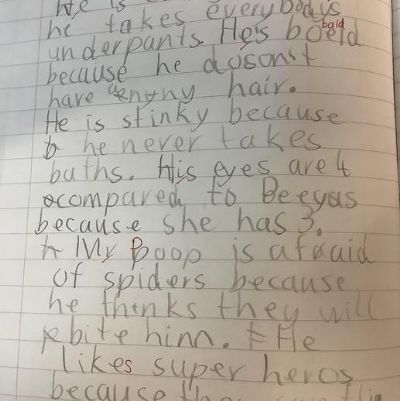 He is
he takes everybodys
underpants. He's boeld bald
because he dosonst
have anyny hair.
He is stinky because
he never takes
baths. His eyes are 4
compared to Beeyas
because she has 3.
My Poop is afraid
of spiders because
he thinks they will
bite hinn. He
likes super heros
because